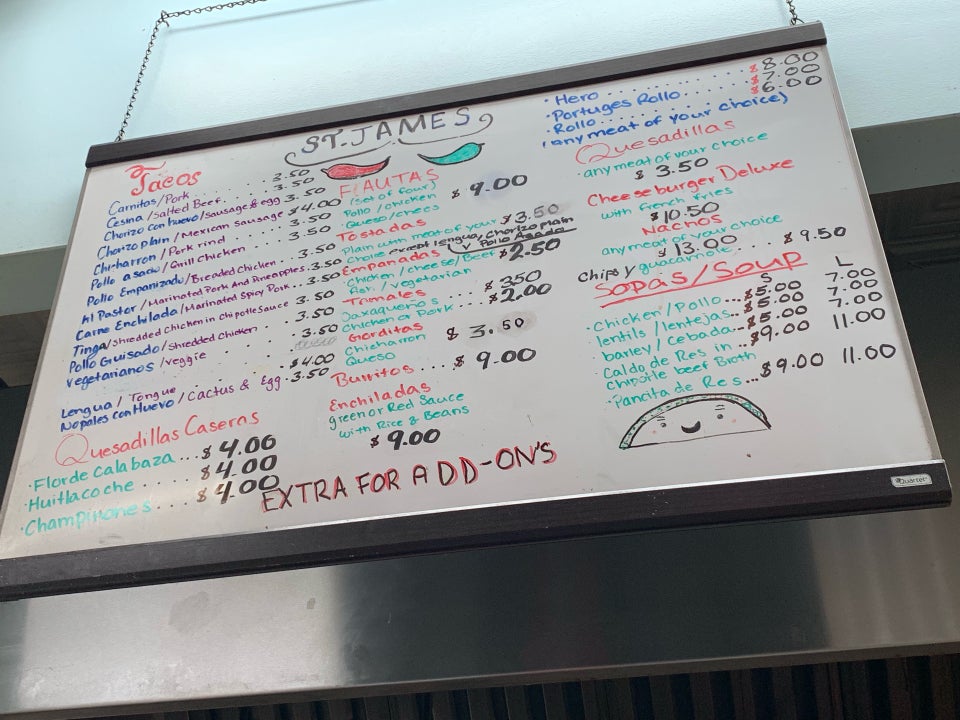 ST. JAMES
Tacos
Carnitos/Pork 3.50
Cesina/Salted Beef 3.50
Chorizo con huevo/sausage & egg 3.50
Chorizo plain/Mexican sausage $4.00
Chicharron/Pork rind 3.50
Pollo asado/Grill Chicken 3.50
Pollo Empanizado/Breaded Chicken 3.50
Al Pastor/Marinated Pork And Pineapples 3.50
Carne Enchilada/Marinated Spicy Pork 3.50
Tinga/Shredded Chicken in Chipotle Sauce 3.50
Pollo Guisado/Shredded Chicken 3.50
Vegetarianos/veggie
Lengua/Tongue $4.00
Nopales con Huevo/Cactus & Egg 3.50
Quesadillas Caseras
Flor de Calabaza $4.00
Huitlacoche $4.00
Champinones $4.00
FLAUTAS
(set of four)
Pollo/chicken $9.00
Queso/chees
Tostadas
Plain with meat of your $3.50
Choice except lengua, Chorizo plain
y Pollo Asado
Empanadas
Chicken/cheese/Beef $2.50
/vegetarian
Tamales
Oaxaqueños $350
Chicken or Pork $2.00
Gorditas
Chicharron $3.50
Queso
Burritos $9.00
Enchiladas
green or Red Sauce
with Rice & Beans
$9.00
EXTRA FOR ADD-ON'S
Hero $8.00
Portuges Rollo $7.00
Rollo $6.00
(any meat of your choice)
Quesadillas
any meat of your choice
$3.50
Cheeseburger Deluxe
with french fries
$10.50
Nachos
any meat of your choice
$13.00
Chips y guacamole $9.50
Sopas/Soup
S L
Chicken/Pollo $5.00 7.00
lentils/lentejas $5.00 7.00
barley/cebada $5.00 7.00
Caldo de Res in $9.00 11.00
Chipotle beef Broth
Pancita de Res $9.00 11.00
Quartet